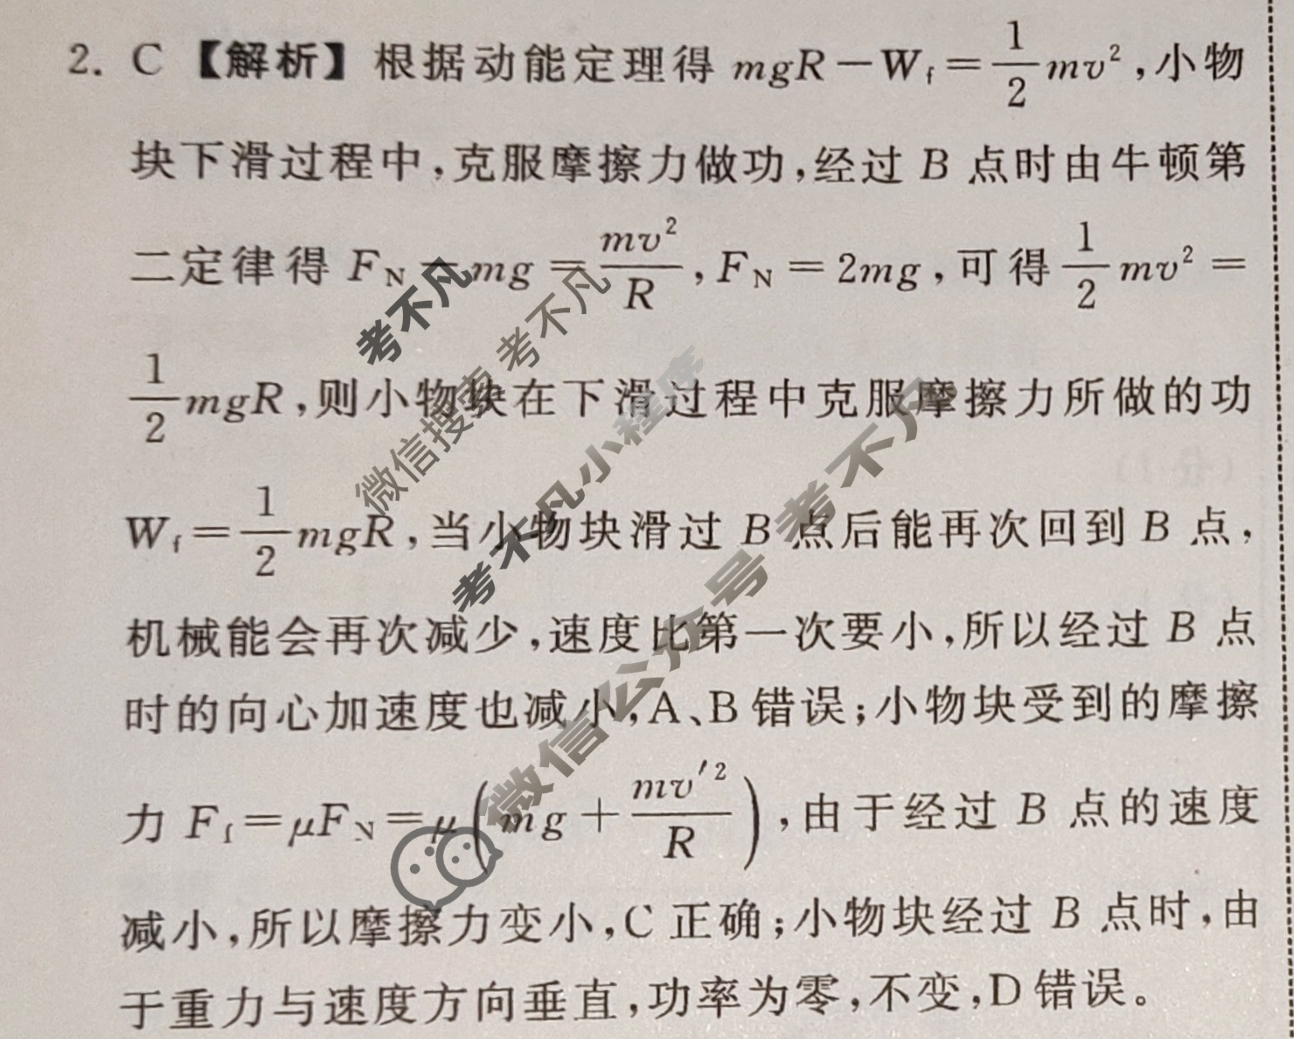 2. C 【解析】根据动能定理得 mgR－W_f＝\frac{1}{2}mv²,小物
块下滑过程中,克服摩擦力做功,经过 B 点时由牛顿第
二定律得 F_N－mg＝\frac{mv²}{R},F_N＝2mg,可得\frac{1}{2}mv²＝
\frac{1}{2}mgR,则小物块在下滑过程中克服摩擦力所做的功
W_f＝\frac{1}{2}mgR,当小物块滑过 B 点后能再次回到 B 点,
机械能会再次减少,速度比第一次要小,所以经过 B 点
时的向心加速度也减小,A、B 错误;小物块受到的摩擦
力 F_f＝μF_N＝μ(mg＋\frac{mv′²}{R}),由于经过 B 点的速度
减小,所以摩擦力变小,C 正确;小物块经过 B 点时,由
于重力与速度方向垂直,功率为零,不变,D 错误。
考不凡
微信搜索 考不凡
考不凡小程序
微信公众号 考不凡